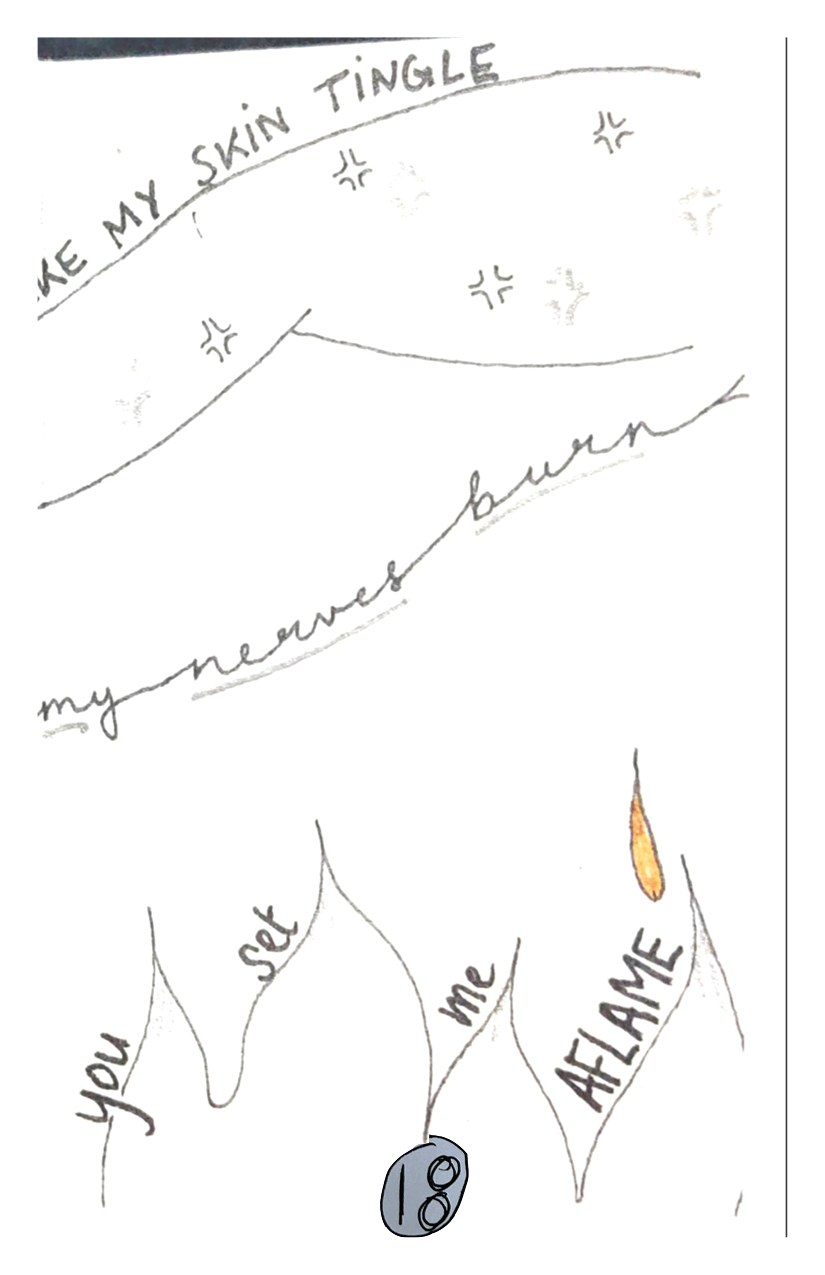 KE MY SKIN TINGLE
my nerves burn
you set me AFLAME
18